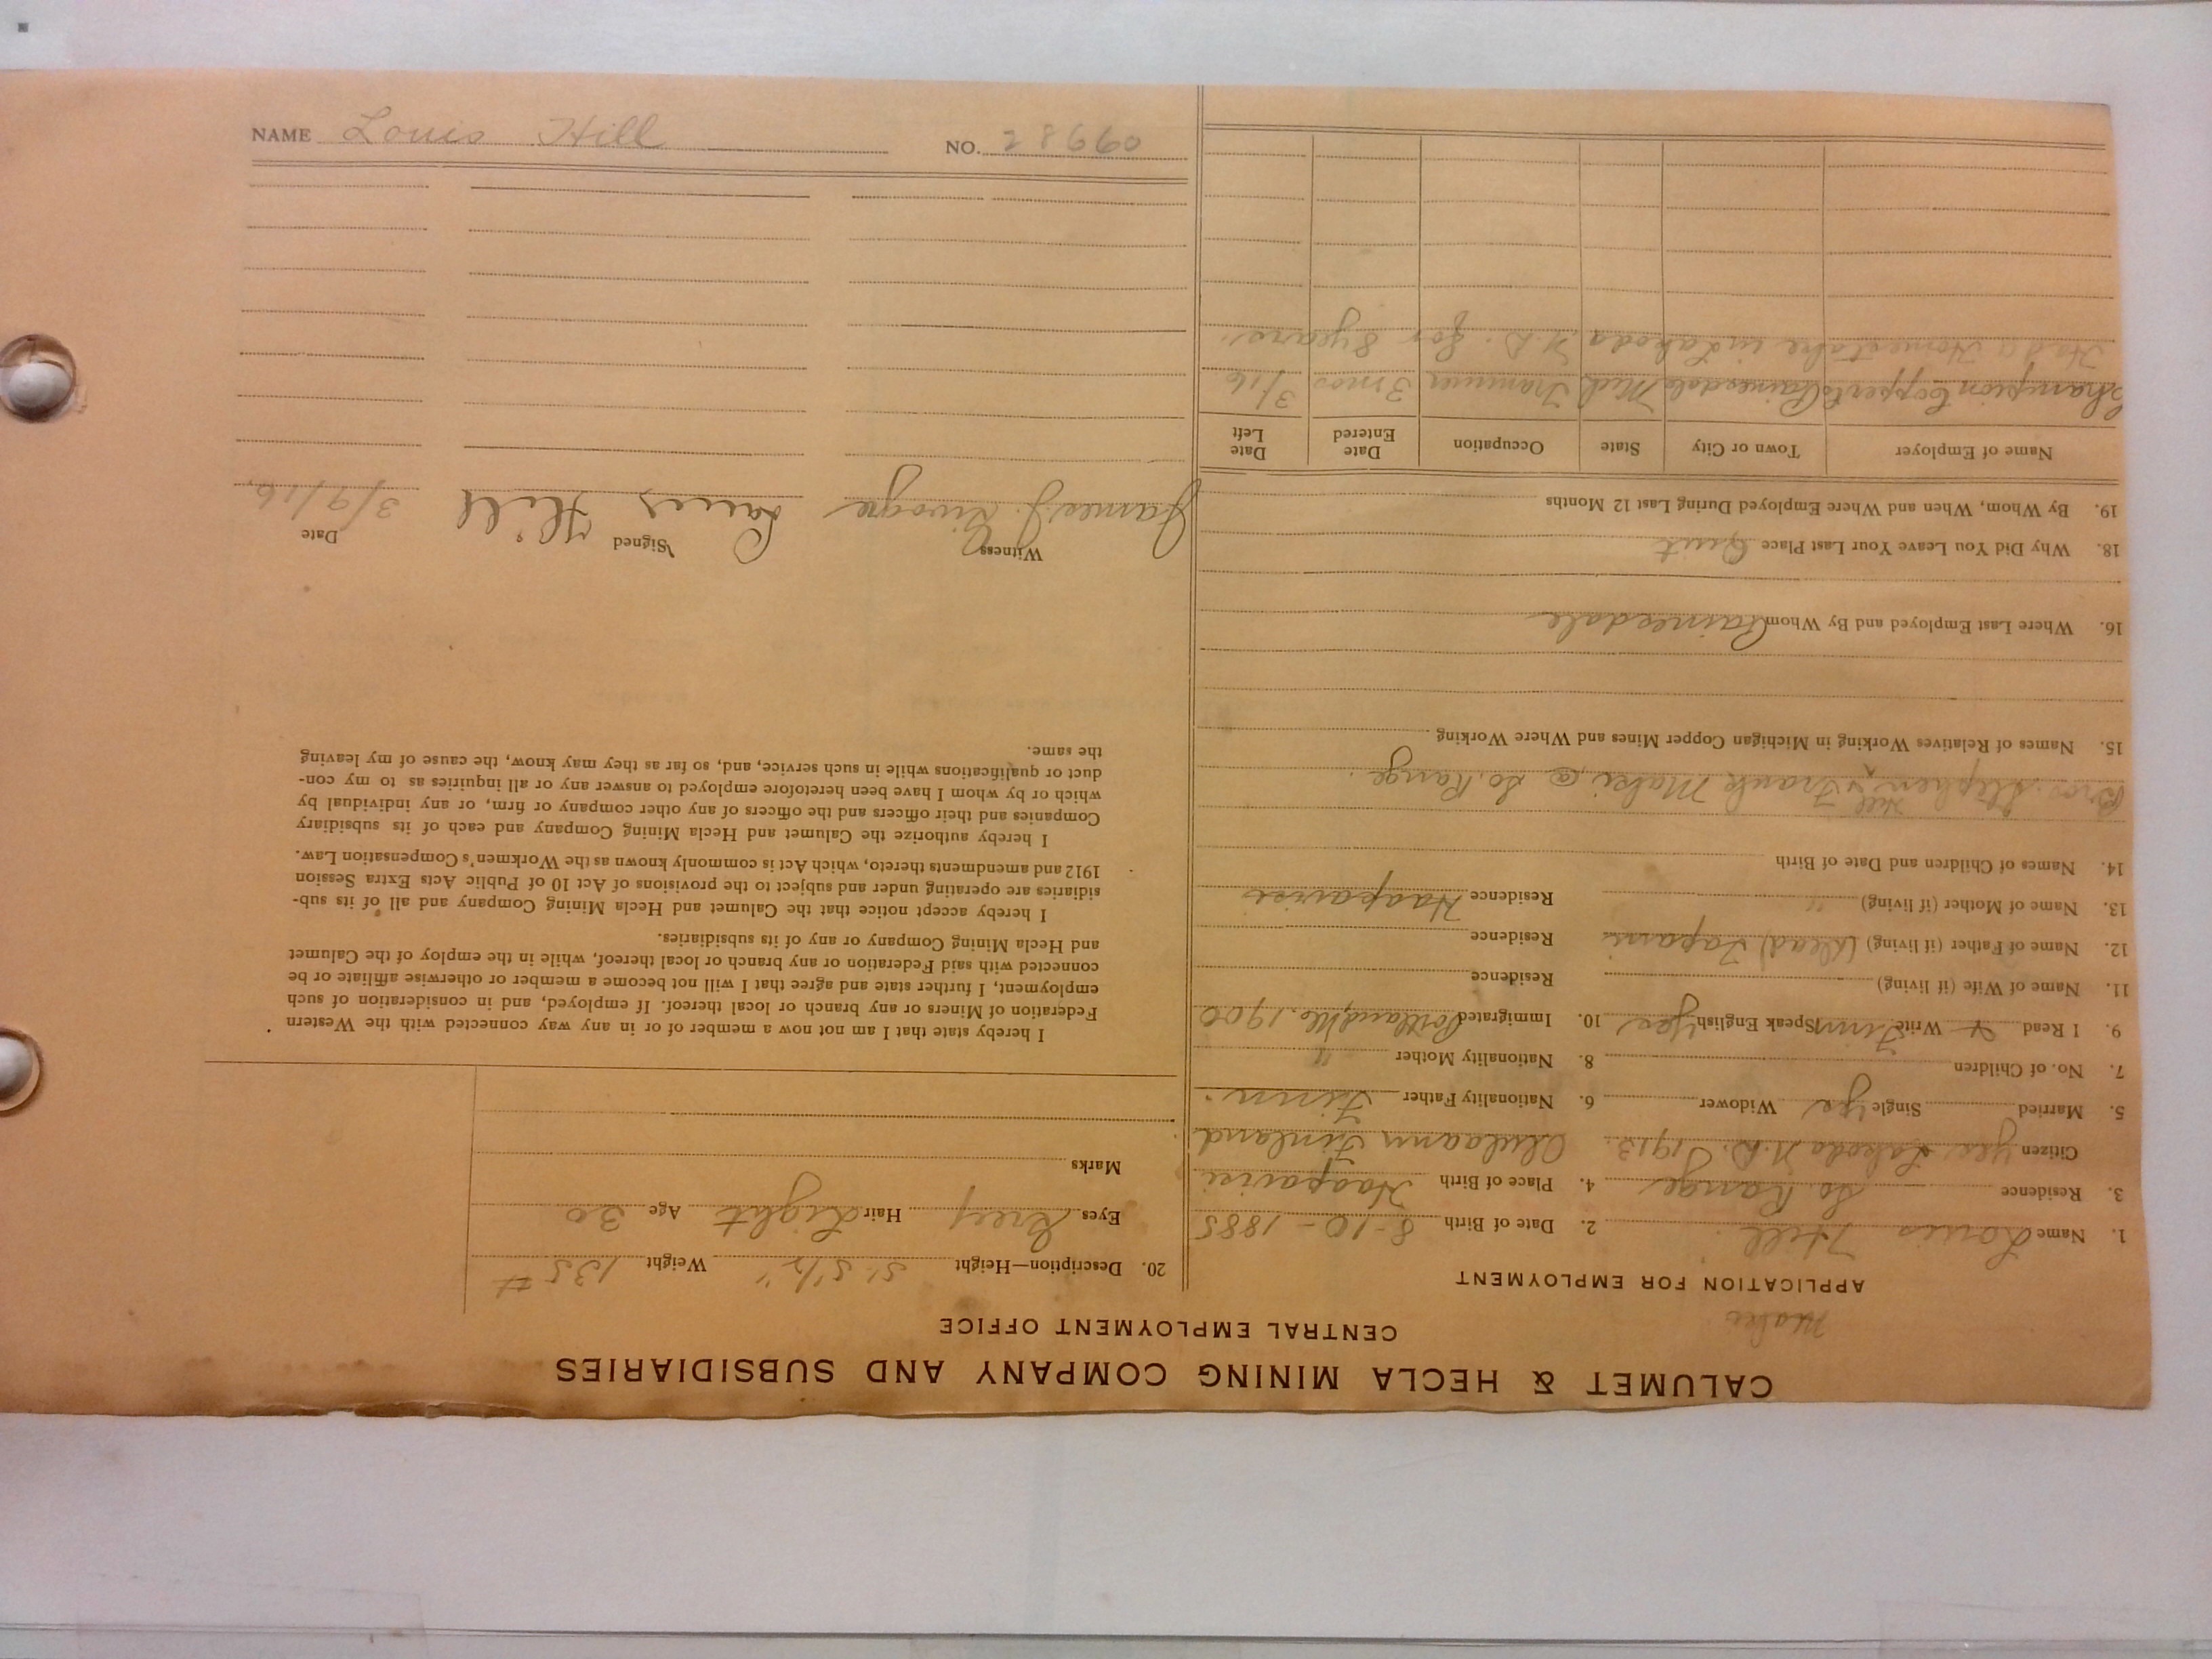 CALUMET & HECLA MINING COMPANY AND SUBSIDIARIES
CENTRAL EMPLOYMENT OFFICE
APPLICATION FOR EMPLOYMENT
1. Name Louis Hill 2. Date of Birth 8-10-1885
3. Residence So. Range 4. Place of Birth Haapavisi
Citizen yes Lakoda N.D. 1913. Finland
5. Married Single yes Widower 6. Nationality Father Finn.
7. No. of Children 8. Nationality Mother "
9. I Read & Write Finn Speak English Yes 10. Immigrated Portland, Me. 1900
11. Name of Wife (if living) Residence
12. Name of Father (if living) (dead) Residence
13. Name of Mother (if living) " Residence Haapavisi
14. Names of Children and Date of Birth
Bros. Stephen Hill & Frank Maki @ So. Range.
15. Names of Relatives Working in Michigan Copper Mines and Where Working
16. Where Last Employed and By Whom Painesdale
18. Why Did You Leave Your Last Place Quit
19. By Whom, When and Where Employed During Last 12 Months
Name of Employer Town or City State Occupation Date Entered Date Left
Champion Copper Co Painesdale Mich Trammer 3 mos 3/16
Had a Homestake in Lakoda N.D. for 8 years.
20. Description—Height 5' 5 1/2" Weight 135 #
Eyes Grey Hair Light Age 30
Marks
I hereby state that I am not now a member of or in any way connected with the Western
Federation of Miners or any branch or local thereof. If employed, and in consideration of such
employment, I further state and agree that I will not become a member or otherwise affiliate or be
connected with said Federation or any branch or local thereof, while in the employ of the Calumet
and Hecla Mining Company or any of its subsidiaries.
I hereby accept notice that the Calumet and Hecla Mining Company and all of its sub-
sidiaries are operating under and subject to the provisions of Act 10 of Public Acts Extra Session
1912 and amendments thereto, which Act is commonly known as the Workmen's Compensation Law.
I hereby authorize the Calumet and Hecla Mining Company and each of its subsidiary
Companies and their officers and the officers of any other company or firm, or any individual by
which or by whom I have been heretofore employed to answer any or all inquiries as to my con-
duct or qualifications while in such service, and, so far as they may know, the cause of my leaving
the same.
Witness Signed Date
James J. Louis Hill 3/9/16.
NAME Louis Hill NO. 28660